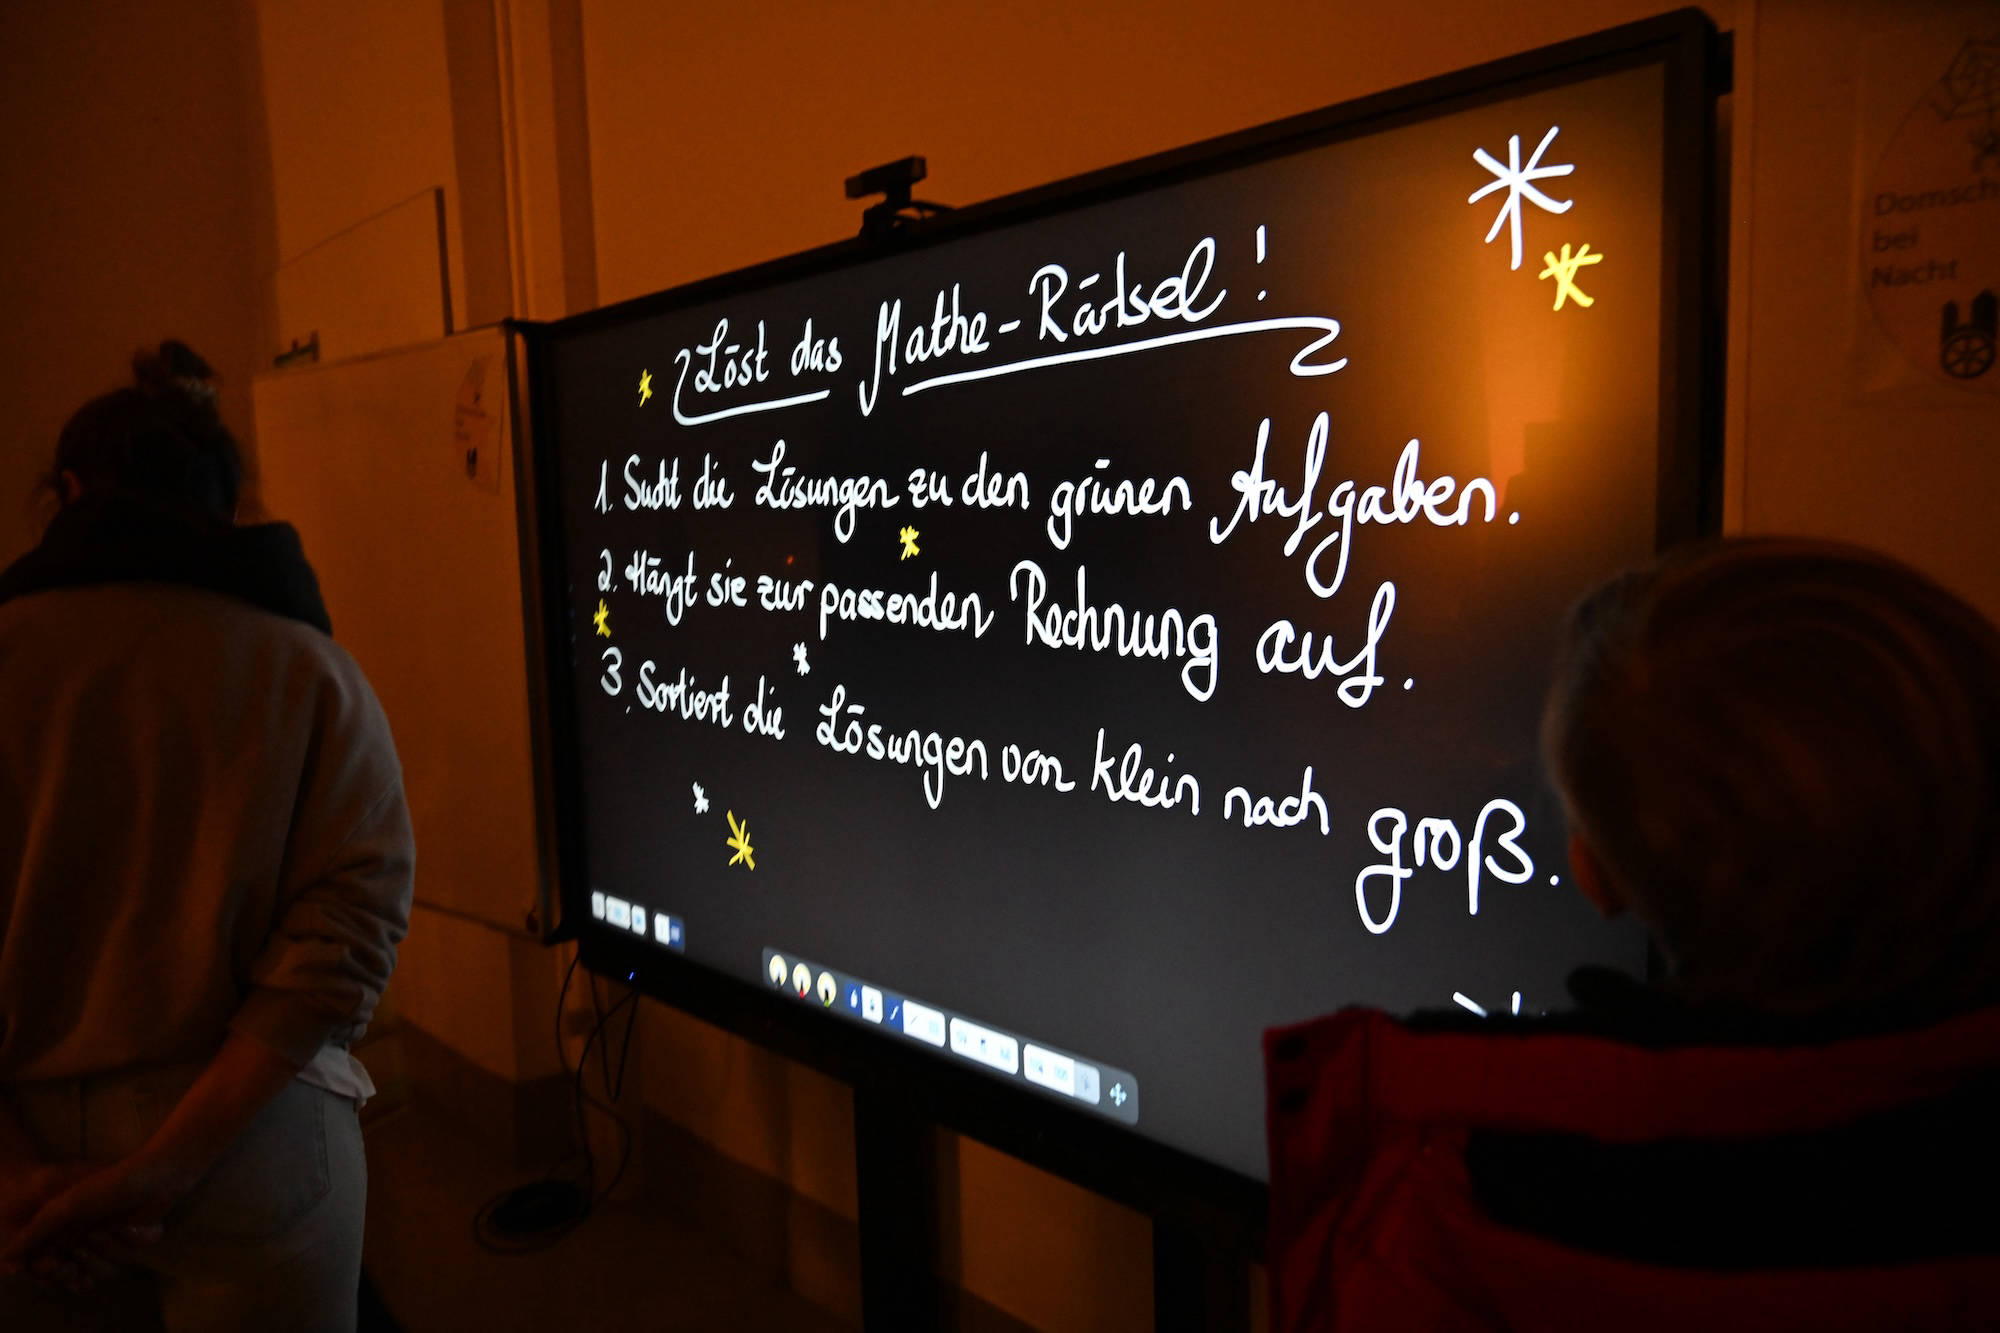 Löst das Mathe-Rätsel!
1. Sucht die Lösungen zu den grünen Aufgaben.
2. Hängt sie zur passenden Rechnung auf.
3. Sortiert die Lösungen von klein nach groß.
bei
Nacht